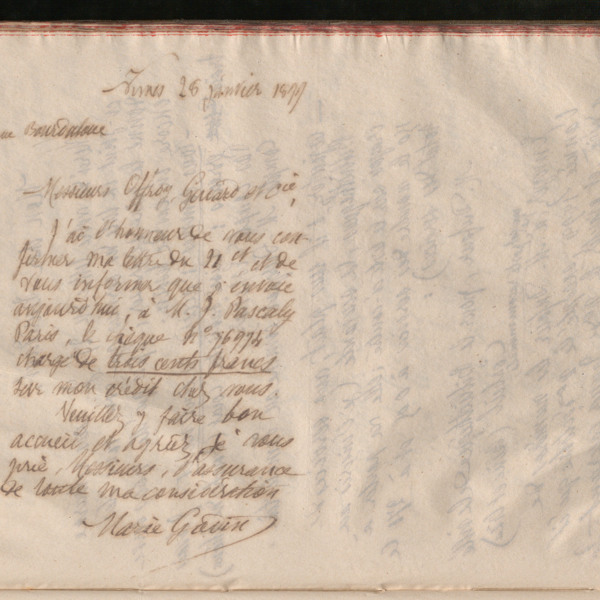 28 janvier 1899
rue Bourdaloue
Messieurs Offroy, Guiard et Cie,
J'ai l'honneur de vous con-
firmer ma lettre du 21 ct et de
vous informer que j'envoie
aujourd'hui, à M. J. Pascaly
Paris, le chèque n° 76974
chargé de trois cents francs
sur mon crédit chez vous.
Veuillez y faire bon
accueil et agréez, je vous
prie, Messieurs, l'assurance
de toute ma considération
Marie Godin